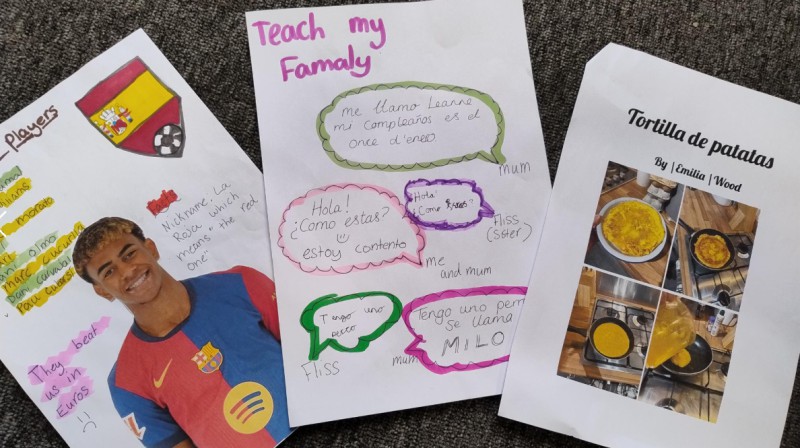 Players
Williams
Morata
Olmo
Marc Cucurella
Dani Carvajal
Pau
Nickname: La
Roja which
means "the red
one"
They beat
us in
Euros
Teach my
Famaly
me llamo Leanne
mi compleaños es el
once d'enero.
mum
Hola!
¿Como estas?
estoy contento
me
and mum
Hola!
¿Como
Fliss
(Sister)
Tengo uno
Fliss
Tengo uno perr
se llama
MILO
mum
Tortilla de patatas
By | Emilia | Wood